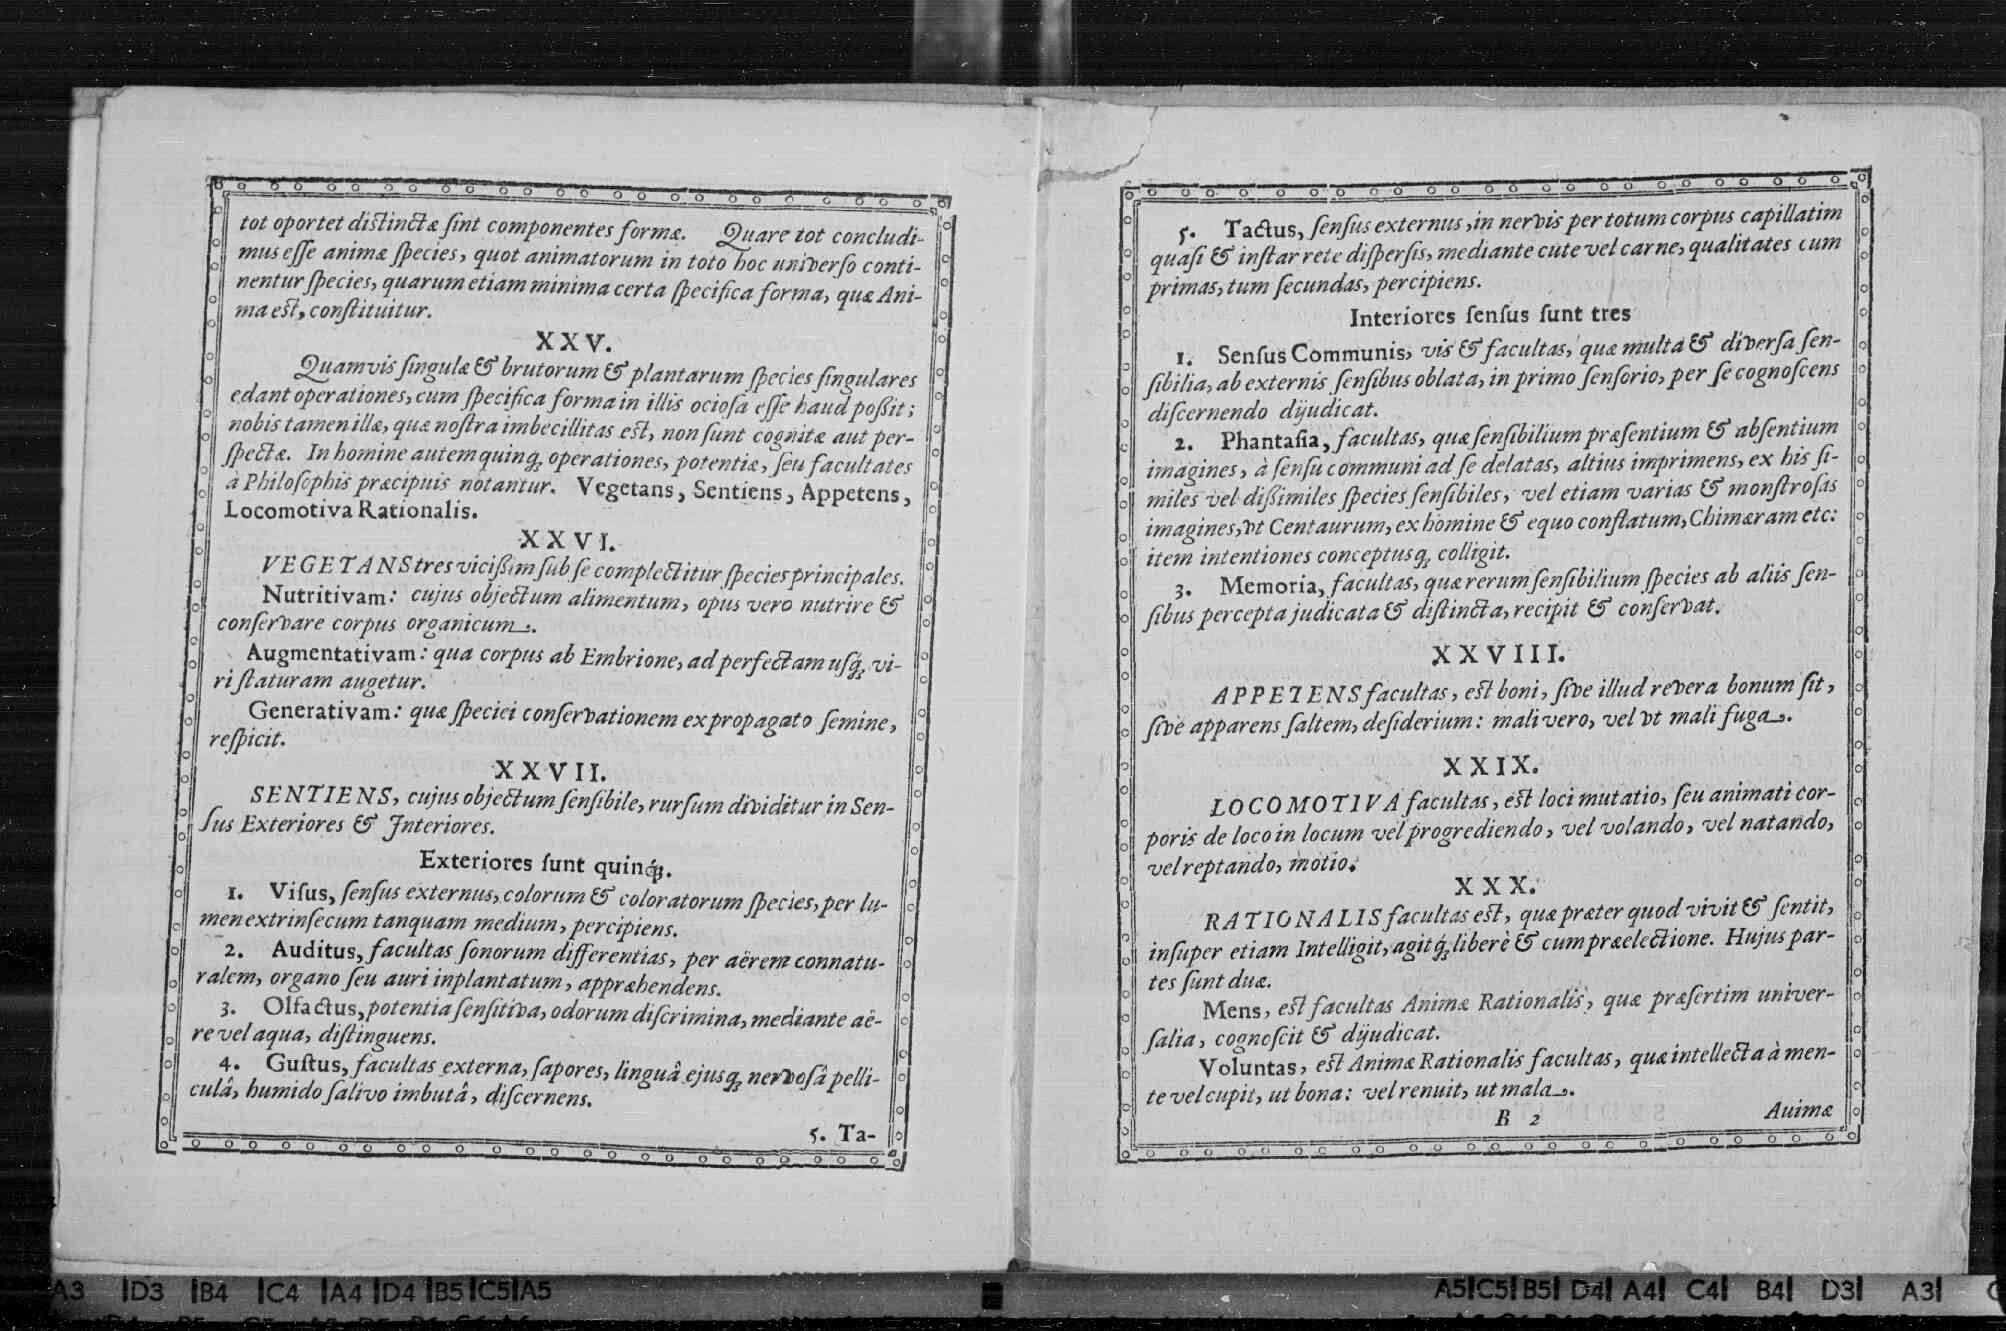 tot oportet distinctæ ſint componentes formæ. Quare tot concludi-
mus eſſe animæ ſpecies, quot animatorum in toto hoc univerſo conti-
nentur ſpecies, quarum etiam minima certa ſpecifica forma, quæ Ani-
ma est, conſtituitur.
XXV.
Quamvis ſingulæ & brutorum & plantarum ſpecies ſingulares
edant operationes, cum ſpecifica forma in illis ocioſa eſſe haud poßit;
nobis tamen illæ, quæ noſtra imbecillitas est, non ſunt cognitæ aut per-
ſpectæ. In homine autem quinq; operationes, potentiæ, ſeu facultates
à Philoſophis præcipuis notantur. Vegetans, Sentiens, Appetens,
Locomotiva Rationalis.
XXVI.
VEGETANS tres vicißim ſub ſe complectitur ſpecies principales.
Nutritivam: cujus objectum alimentum, opus vero nutrire &
conſervare corpus organicum.
Augmentativam: qua corpus ab Embrione, ad perfectam uſq́; vi-
ri ſtaturam augetur.
Generativam: quæ ſpeciei conſervationem ex propagato ſemine,
reſpicit.
XXVII.
SENTIENS, cujus objectum ſenſibile, rurſum dividitur in Sen-
ſus Exteriores & Interiores.
Exteriores ſunt quinq́;.
1. Viſus, ſenſus externus, colorum & coloratorum ſpecies, per lu-
men extrinſecum tanquam medium, percipiens.
2. Auditus, facultas ſonorum differentias, per aërem connatu-
ralem, organo ſeu auri inplantatum, appræhendens.
3. Olfactus, potentia ſenſitiva, odorum diſcrimina, mediante aë-
re vel aqua, diſtinguens.
4. Guſtus, facultas externa, ſapores, linguâ ejusq; nervoſâ pelli-
culâ, humido ſalivo imbutâ, diſcernens.
5. Ta-
5. Tactus, ſenſus externus, in nervis per totum corpus capillatim
quaſi & inſtar rete diſperſis, mediante cute vel carne, qualitates cum
primas, tum ſecundas, percipiens.
Interiores ſenſus ſunt tres
1. Senſus Communis, vis & facultas, quæ multa & diverſa ſen-
ſibilia, ab externis ſenſibus oblata, in primo ſenſorio, per ſe cognoſcens
diſcernendo dijudicat.
2. Phantaſia, facultas, quæ ſenſibilium præſentium & abſentium
imagines, à ſenſu communi ad ſe delatas, altius imprimens, ex his ſi-
miles vel dißimiles ſpecies ſenſibiles, vel etiam varias & monſtroſas
imagines, vt Centaurum, ex homine & equo conflatum, Chimæram etc:
item intentiones conceptusq; colligit.
3. Memoria, facultas, quæ rerum ſenſibilium ſpecies ab aliis ſen-
ſibus percepta judicata & diſtincta, recipit & conſervat.
XXVIII.
APPETENS facultas, est boni, ſive illud revera bonum ſit,
ſive apparens ſaltem, deſiderium: mali vero, vel vt mali fuga.
XXIX.
LOCOMOTIVA facultas, est loci mutatio, ſeu animati cor-
poris de loco in locum vel progrediendo, vel volando, vel natando,
vel reptando, motio.
XXX.
RATIONALIS facultas est, quæ præter quod vivit & ſentit,
inſuper etiam Intelligit, agitq́; liberè & cum præelectione. Hujus par-
tes ſunt duæ.
Mens, est facultas Animæ Rationalis, quæ præſertim univer-
ſalia, cognoſcit & dijudicat.
Voluntas, est Animæ Rationalis facultas, quæ intellecta à men-
te vel cupit, ut bona: vel renuit, ut mala.
B 2 Auimæ
A3 D3 B4 C4 A4 D4 B5 C5 A5
A5 C5 B5 D4 A4 C4 B4 D3 A3